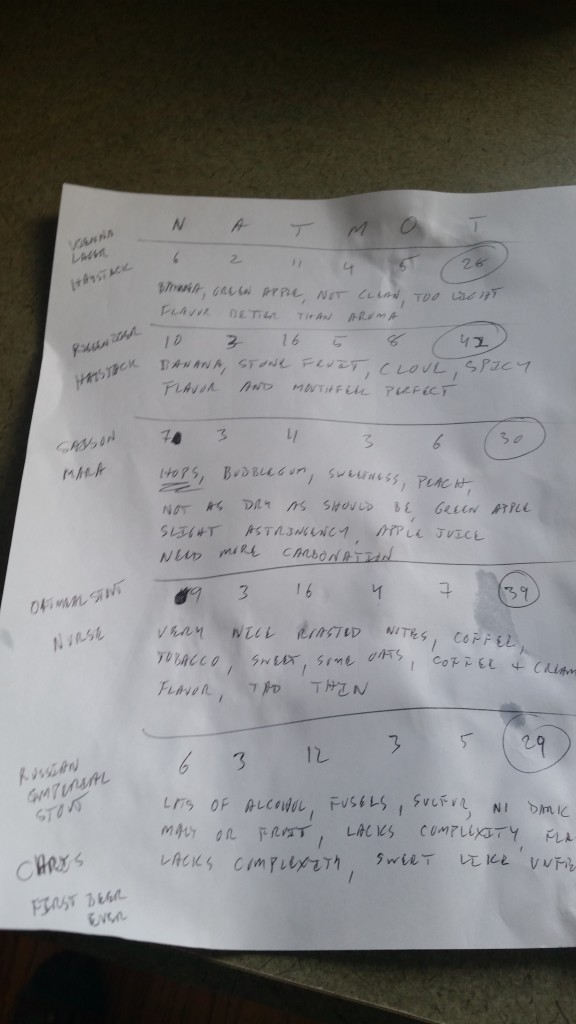 N A T M O T
VIENNA
LAGER
HAYSTACK
6 2 11 4 5 28
BANANA, GREEN APPLE, NOT CLEAN, TOO LIGHT
FLAVOR BETTER THAN AROMA
HAYSTACK
10 3 16 5 8 42
BANANA, STONE FRUIT, CLOVE, SPICY
FLAVOR AND MOUTHFEEL PERFECT
SAISON
MARA
7 3 11 3 6 30
HOPS, BUBBLEGUM, SWEETNESS, PEACH,
NOT AS DRY AS SHOULD BE, GREEN APPLE
SLIGHT ASTRINGENCY, APPLE JUICE
NEED MORE CARBONATION
OATMEAL STOUT
NURSE
9 3 16 4 7 39
VERY NICE ROASTED NOTES, COFFEE,
TOBACCO, SWEET, SOME OATS, COFFEE + CREAM
FLAVOR, TAD THIN
RUSSIAN
IMPERIAL
STOUT
CHRIS
FIRST BEER
EVER
6 3 12 3 5 29
LOTS OF ALCOHOL, FUSELS, SULFUR, NO DARK
MALT OR FRUIT, LACKS COMPLEXITY, FLA
LACKS COMPLEXITY, SWEET LIKE UNFE